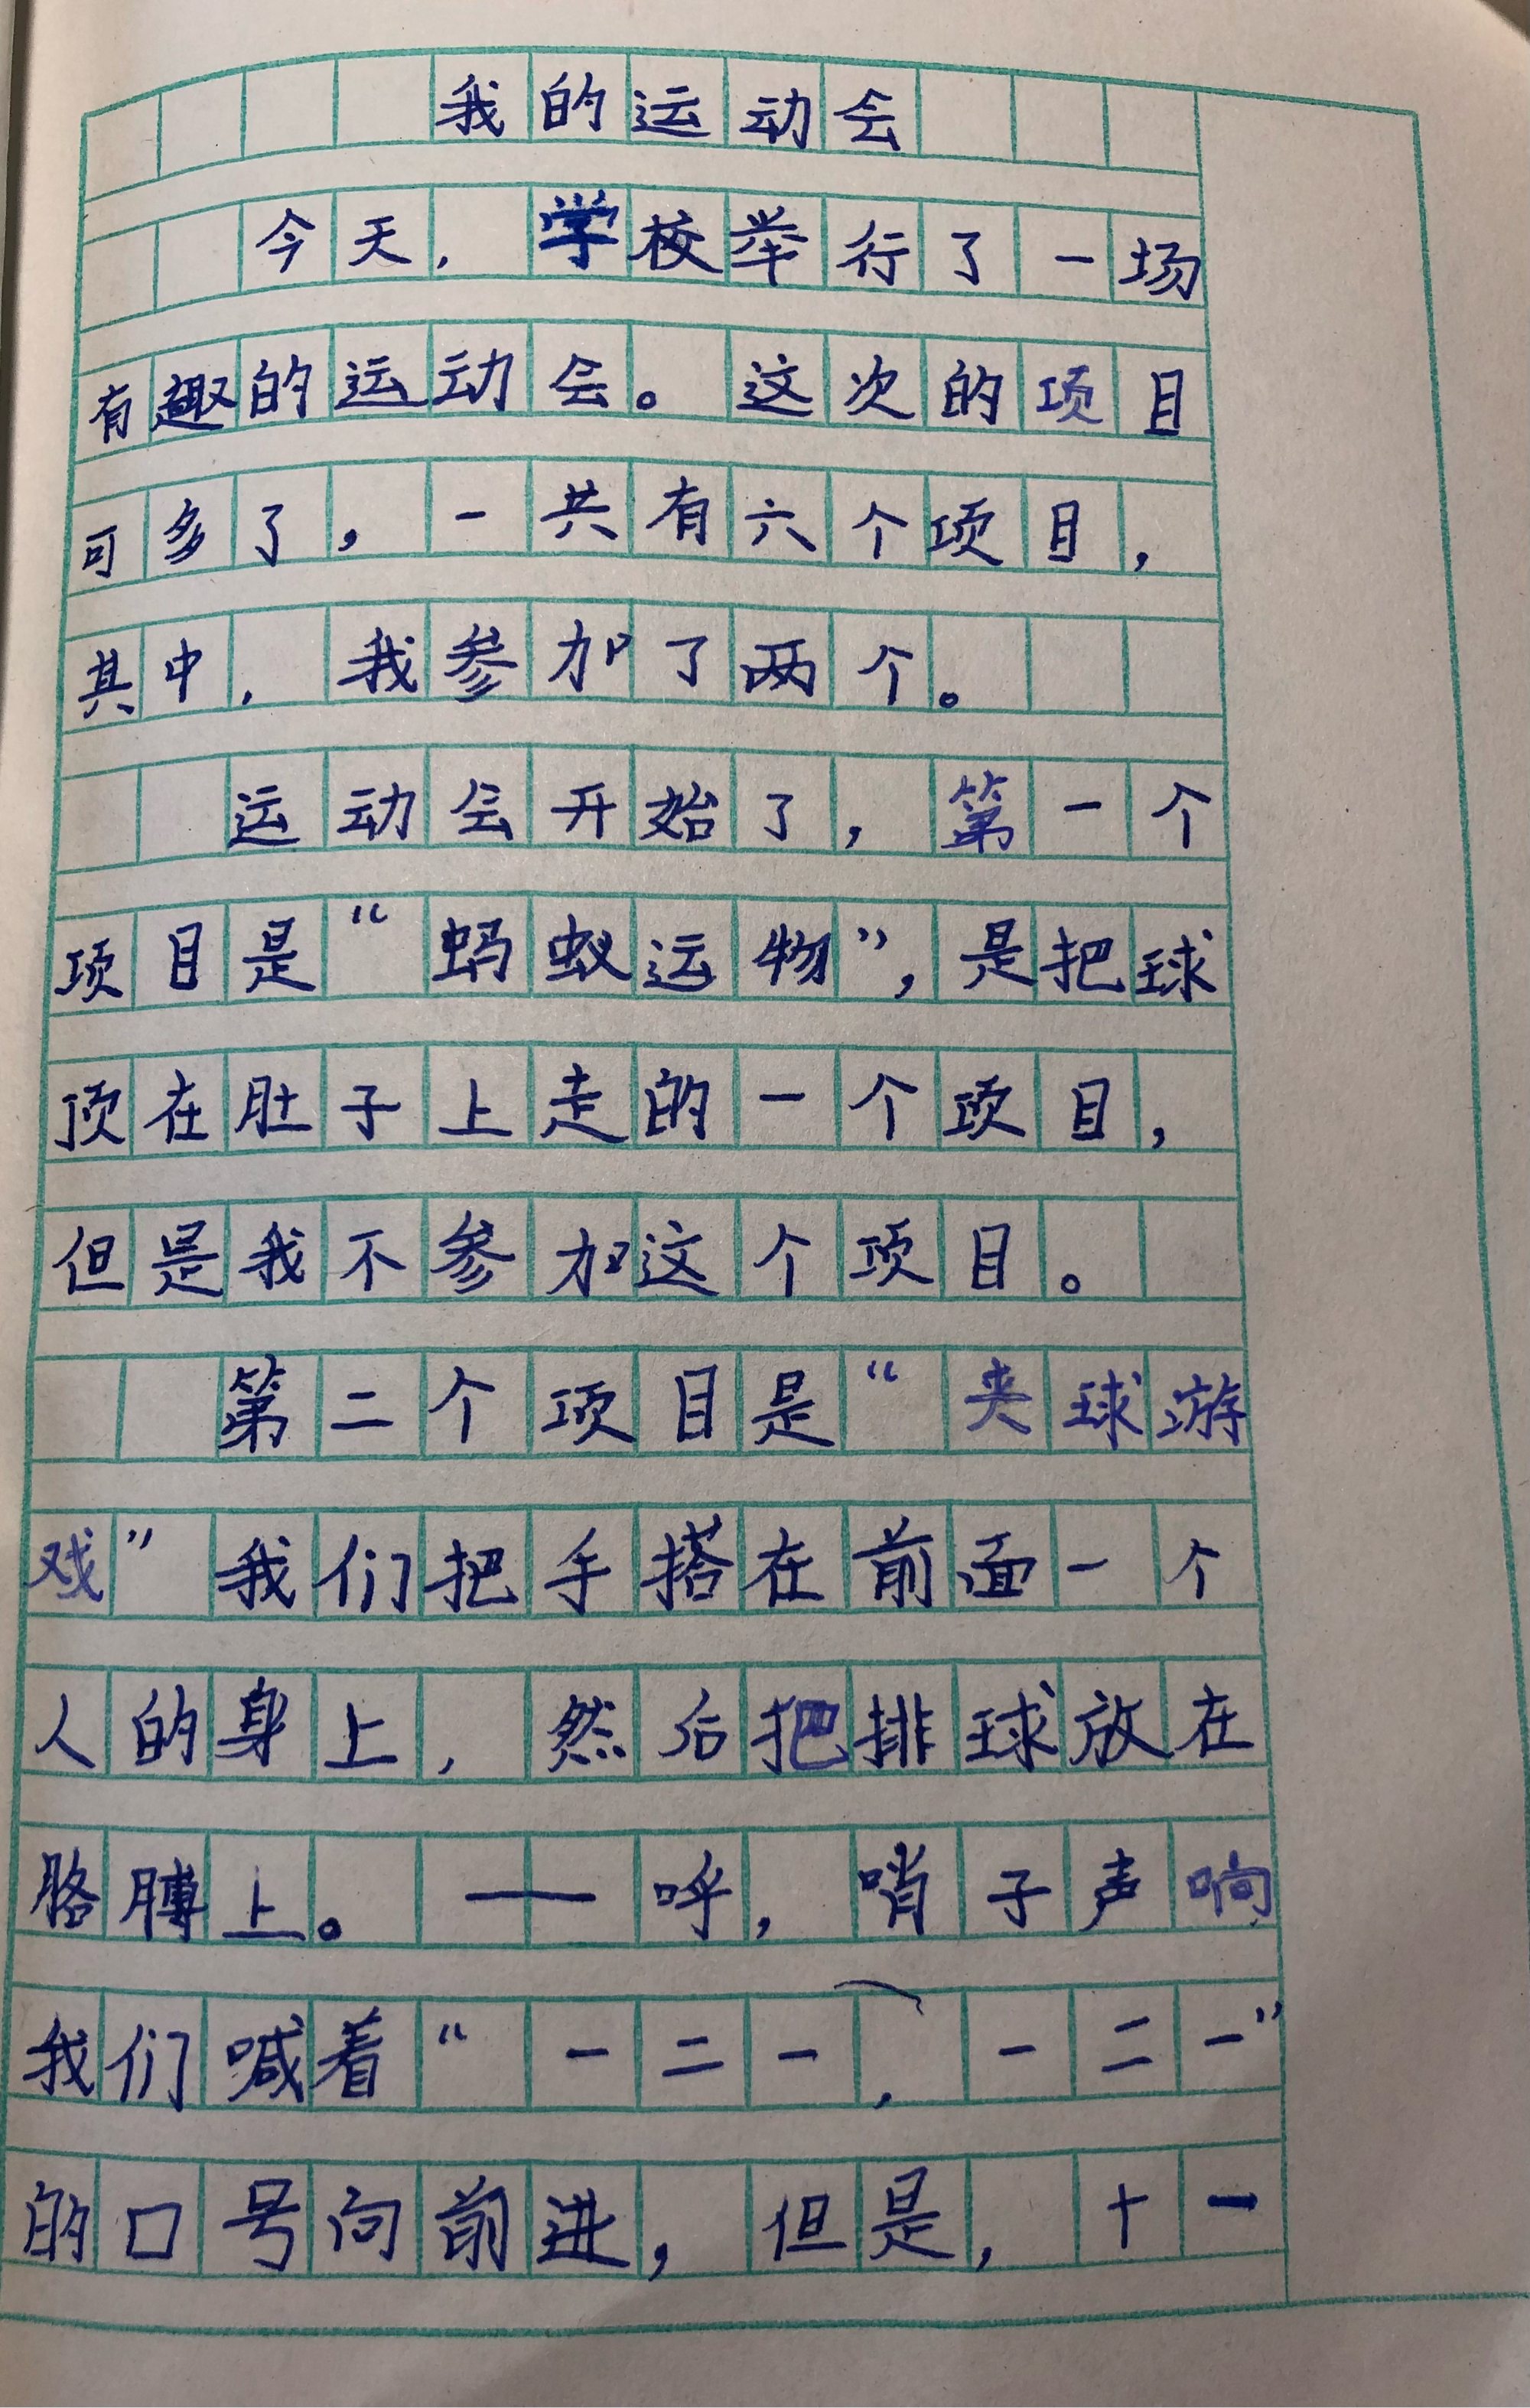 我的运动会
今天，学校举行了一场
有趣的运动会。这次的项目
可多了，一共有六个项目，
其中，我参加了两个。
运动会开始了，第一个
项目是“蚂蚁运物”，是把球
顶在肚子上走的一个项目，
但是我不参加这个项目。
第二个项目是“夹球游
戏”我们把手搭在前面一个
人的身上，然后把排球放在
胳膊上。——呼，哨子声响
我们喊着“一二一，一二一”
的口号向前进，但是，十一